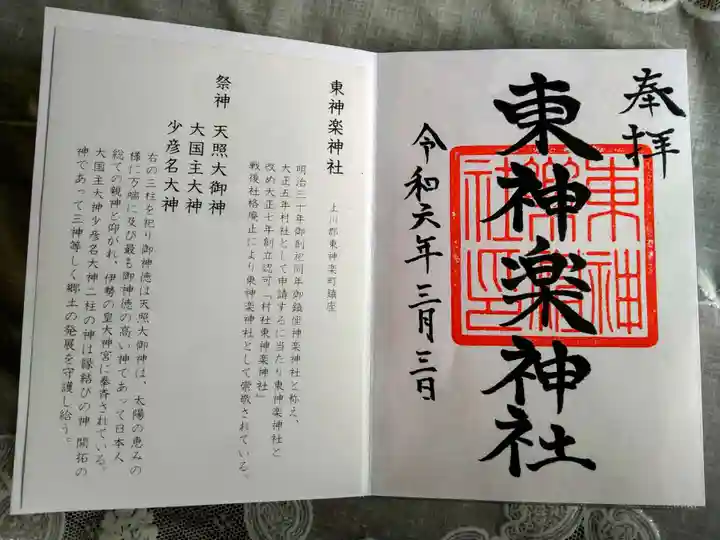 奉拝
東神楽神社
東神楽神社印
令和六年三月三日
東神楽神社
上川郡東神楽町鎮座
明治三十年御創祀同年御鎮座神楽神社と称え、
大正五年村社として申請するに当たり東神楽神社と
改め大正七年創立認可「村社東神楽神社」
戦後社格廃止により東神楽神社として崇敬されている。
祭神 天照大御神
大国主大神
少彦名大神
右の三柱を祀り御神徳は天照大御神は、太陽の恵みの
様に万端に及び最も御神徳の高い神であって日本人
総ての親神と仰がれ、伊勢の皇大神宮に奉斎されている。
大国主大神少彦名大神二柱の神は縁結びの神 開拓の
神であって三神等しく郷土の発展を守護し給う。